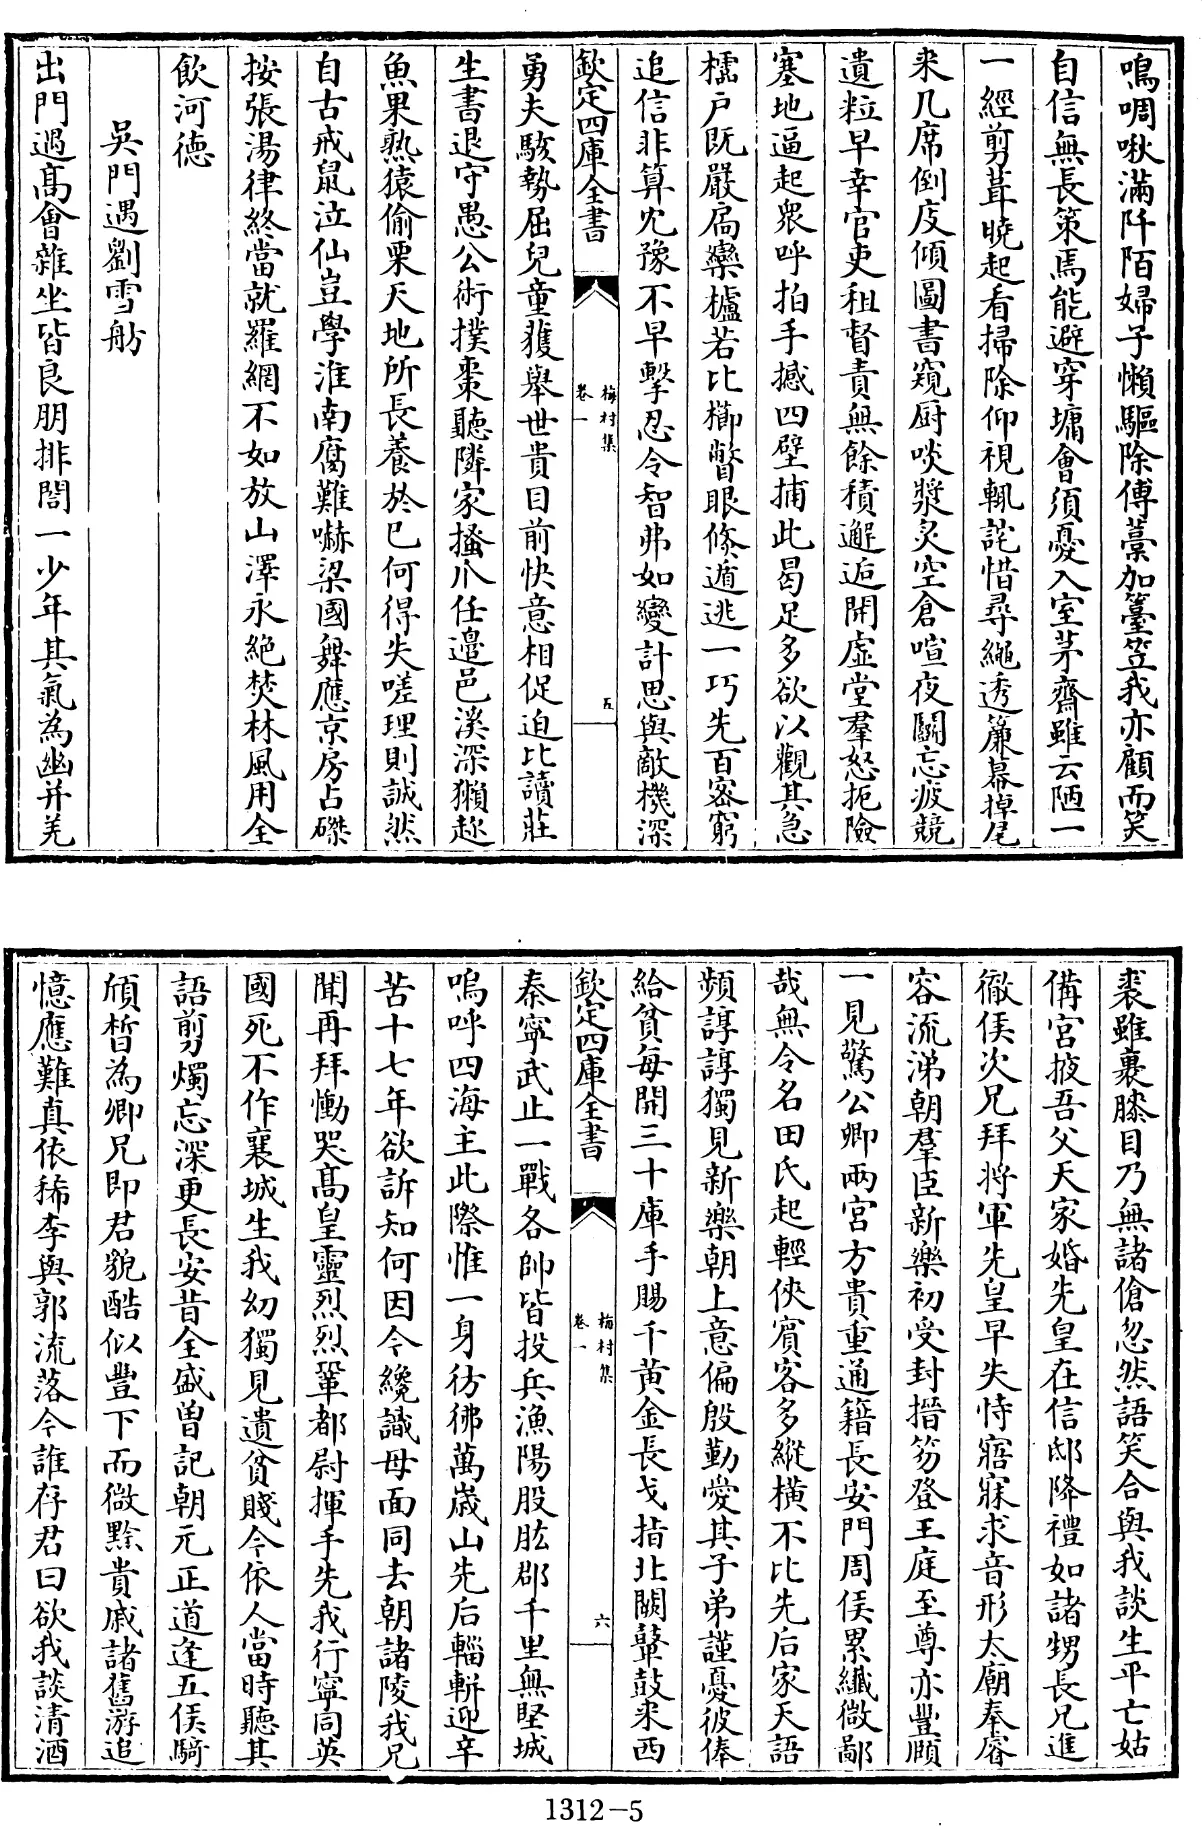 鳴啁啾滿阡陌婦子懶驅除傅藁加䑓笠我亦顧而笑
自信無長策焉能避穿墉會須憂入室茅齋雖云陋一
一經剪葺曉起看掃除仰視輒詫惜尋繩透簾幕掉尾
来几席倒庋傾圖書窺厨啖漿炙空倉喧夜鬬忘疲競
遺粒早幸官吏租督責無餘積邂逅開虛堂羣怒扼險
塞地逼起衆呼拍手撼四壁捕此曷足多欲以觀其急
櫺户既嚴扃欒櫨若比櫛瞥眼倏遁逃一巧先百密窮
追信非算冘豫不早擊忍令智弗如變計思與敵機深
欽定四庫全書
梅村集
卷一
五
勇夫駭勢屈兒童獲舉世貴目前快意相促迫比讀莊
生書退守愚公術撲棗聽隣家搔爪任邉邑溪深獺趂
魚果熟猿偷栗天地所長養於已何得失嗟理則誠然
自古戒鼠泣仙豈學淮南腐難嚇梁國舞應京房占磔
按張湯律終當就羅網不如放山澤永絶焚林風用全
飲河徳
吳門遇劉雪舫
出門遇髙會雜坐皆良朋排閤一少年其氣為幽并羌
裘雖裹膝目乃無諸傖忽然語笑合與我談生平亡姑
備宫掖吾父天家婚先皇在信邸降禮如諸甥長兄進
徹侯次兄拜將軍先皇早失恃寤寐求音形太廟奉睿
容流涕朝羣臣新樂初受封搢笏登王庭至尊亦豐頤
一見驚公卿兩宫方貴重通籍長安門周侯累纖微鄙
哉無令名田氏起輕俠賓客多縱橫不比先后家天語
頻諄諄獨見新樂朝上意偏殷勤愛其子弟謹憂彼俸
給貧每開三十庫手賜千黄金長戈指北闕鼙鼓来西
欽定四庫全書
梅村集
卷一
六
秦寧武止一戰各帥皆投兵漁陽股肱郡千里無堅城
嗚呼四海主此際惟一身彷彿萬嵗山先后輜軿迎辛
苦十七年欲訴知何因今纔識母面同去朝諸陵我兄
聞再拜慟哭髙皇靈烈烈鞏都尉揮手先我行寧同英
國死不作襄城生我幼獨見遺貧賤今依人當時聽其
語剪燭忘深更長安昔全盛曽記朝元正道逢五侯騎
頎晳為卿兄即君貌酷似豐下而微黔貴戚諸舊游追
憶應難真依稀李與郭流落今誰存君曰欲我談清酒
1312-5